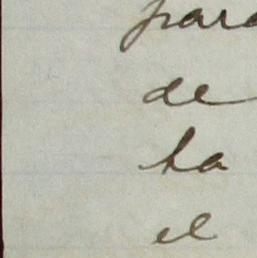 para
de
ha
el